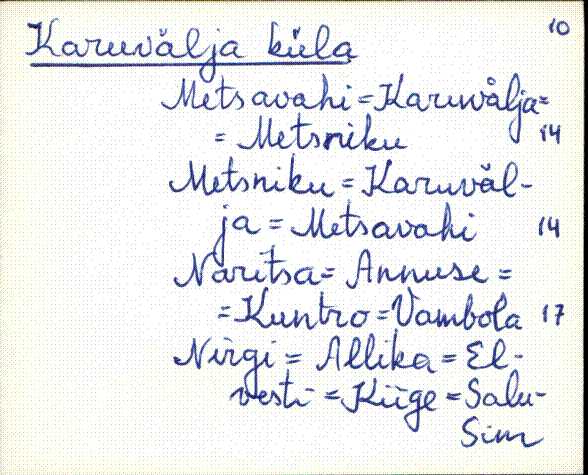 10
Karuvälja küla
Metsavahi = Karuvälja=
= Metsniku 14
Metsniku = Karuväl-
ja = Metsavahi 14
Naritsa = Annuse =
= Kuntro = Vambola 17
Nirgi = Allika = El-
vesti = Kiige = Salu-
Sim